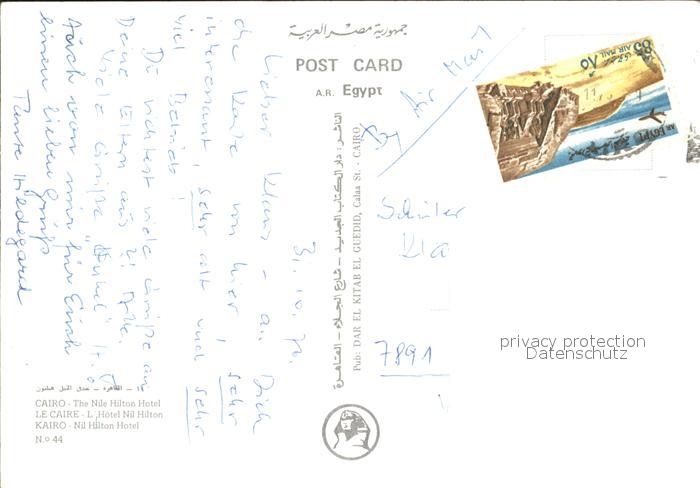 جمهورية مصر العربية
POST CARD
A.R. Egypt
Air Mail
By
85 ٨٥
AIR MAIL
A.R. EGYPT
31.10.78
Lieber Klaus - an Dich
die Karte von hier, sehr
interessant, sehr alt und sehr
viel Betrieb!
Du richtest viele Grüße an
Deine Eltern aus
Viele Grüße "Onkel" H.
Auch von mir für Euch
einen lieben Gruß
Tante Hildegard
الناشر: دار الكتاب الجديد - شارع الجلاء - القاهرة
Pub: DAR EL KITAB EL GUEDID, Galaa St. - CAIRO
Schüler
Kla
7891
privacy protection
Datenschutz
القاهرة - فندق النيل هيلتون
CAIRO - The Nile Hilton Hotel
LE CAIRE - L'Hôtel Nil Hilton
KAIRO - Nil Hilton Hotel
N.o 44